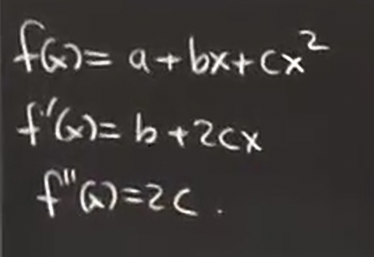 f(x) = a + bx + cx²
f'(x) = b + 2cx
f''(x) = 2c.